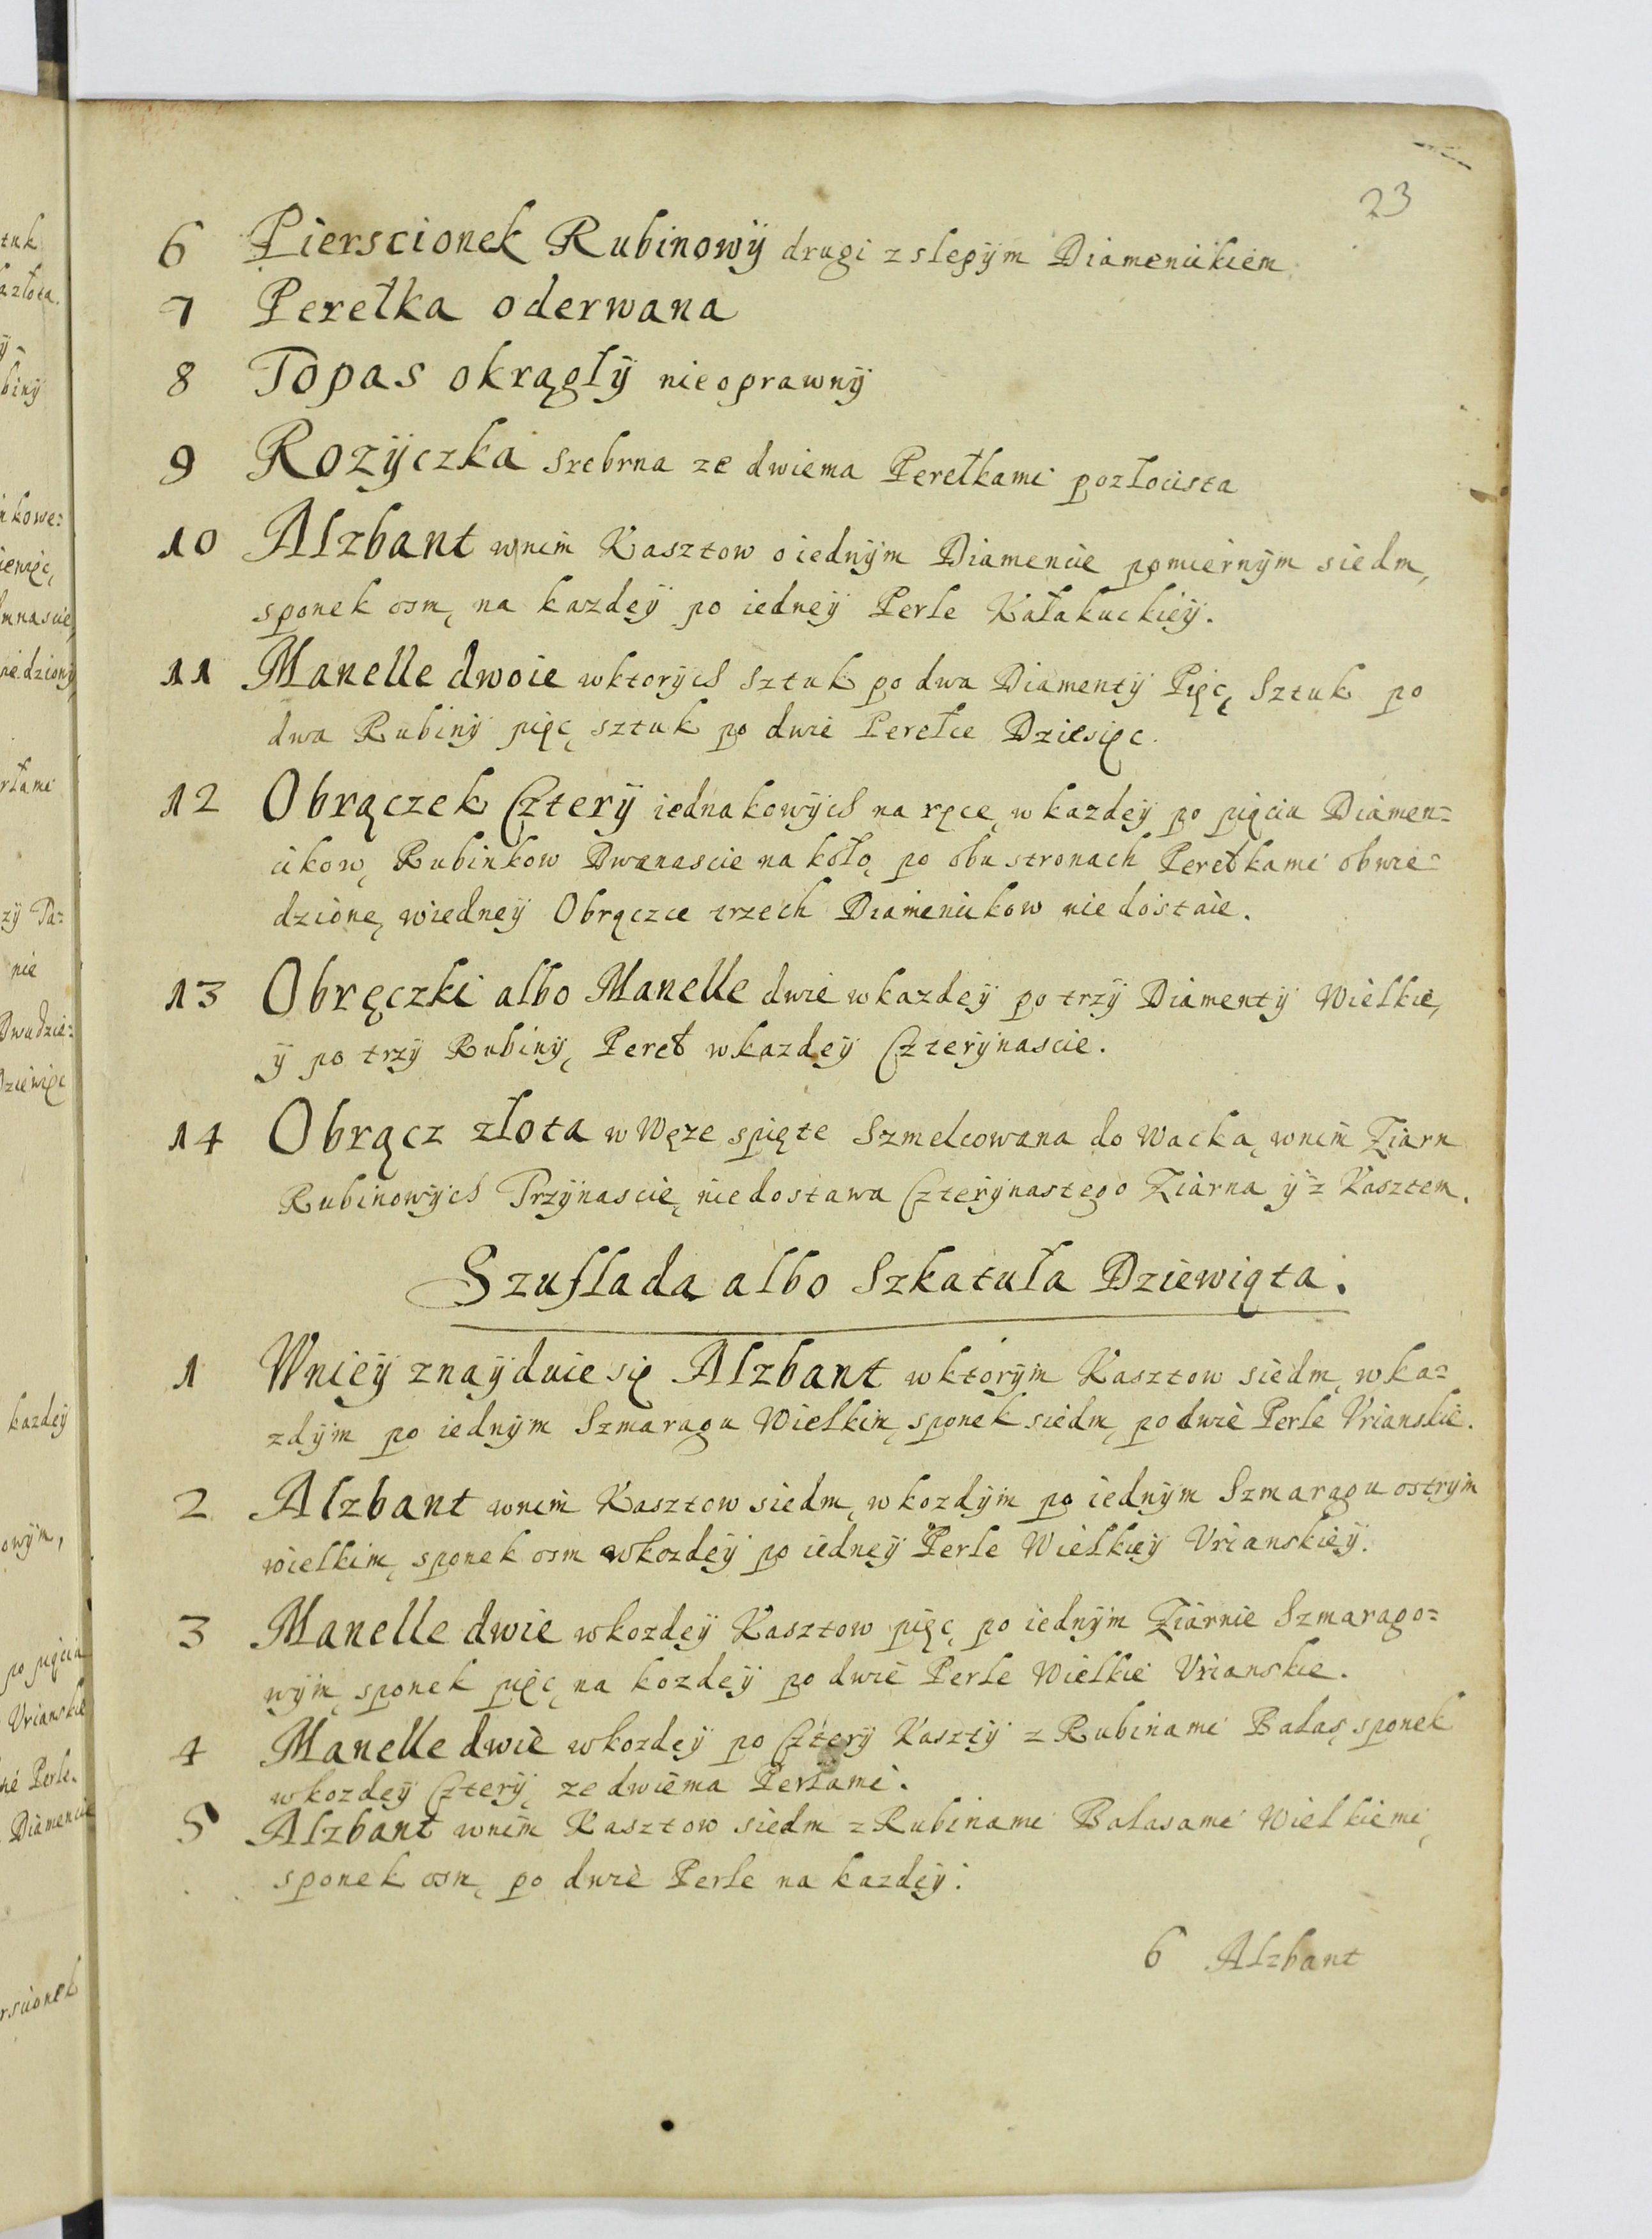 23
6 Pierscionek Rubinowÿ drugi z slepÿm Diamencikiem
7 Perełka oderwana
8 Topas okrągłÿ nieoprawnÿ
9 Rozÿczka srebrna ze dwiema Perełkami pozłocista
10 Alzbant wnim Kasztow o iednÿm Diamencie pomiernÿm siedm,
sponek osm, na kazdeÿ po iedneÿ Perle Kałakuckieÿ.
11 Manelle dwoie wktorÿch Sztuk po dwa Diamentÿ Pięć, Sztuk po
dwa Rubinÿ pięć, sztuk po dwie Perełce Dziesięc.
12 Obrączek Czterÿ iednakowÿch na ręce, w kazdeÿ po pięciu Diamen=
cikow, Rubinkow Dwanascie na koło, po obu stronach Perełkami obwie=
dzione, wiedneÿ Obrączce trzech Diamencikow niedostaie.
13 Obręczki albo Manelle dwie wkazdeÿ po trzÿ Diamentÿ Wielkie,
ÿ po trzÿ Rubinÿ, Pereł wkazdeÿ Czterÿnascie.
14 Obrącz złota w Węze spięte Szmelcowana do Wacka, wnim Ziarn
Rubinowÿch Trzÿnascie, niedostawa Czterÿnastego Ziarna ÿ z Kasztem.
Szuflada albo Szkatuła Dziewiąta.
1 Wnieÿ znaÿduie się Alzbant w ktorÿm Kasztow siedm, w ka=
zdÿm po iednÿm Szmaragu Wielkim, sponek siedm, po dwie Perle Vrianskie.
2 Alzbant wnim Kasztow siedm, w kozdÿm po iednÿm Szmaragu ostrÿm
wielkim, sponek osm wkozdeÿ po iedneÿ Perle Wielkieÿ Vrianskieÿ.
3 Manelle dwie wkozdeÿ Kasztow pięć, po iednÿm Ziarnie Szmarago=
wÿm, sponek pięć, na kozdeÿ po dwie Perle Wielkie Vrianskie.
4 Manelle dwie wkozdeÿ po Czterÿ Kasztÿ z Rubinami Balas, sponek
wkozdeÿ Czterÿ, ze dwiema Perłami.
5 Alzbant wnim Kasztow siedm z Rubinami Balasami Wielkiemi,
sponek osm, po dwie Perle na kazdeÿ.
6 Alzbant